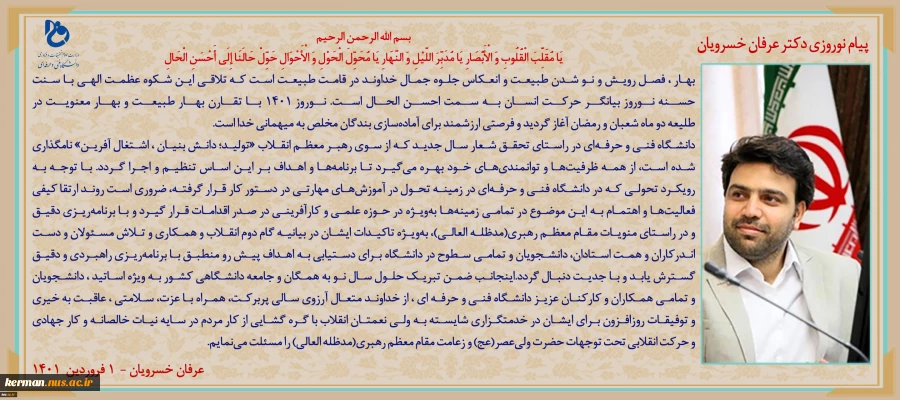 پیام نوروزی دکتر عرفان خسرویان
بسم الله الرحمن الرحیم
یَا مُقَلِّبَ الْقُلُوبِ وَ الْأَبْصَارِ یَا مُدَبِّرَ اللَّیْلِ وَ النَّهَارِ یَا مُحَوِّلَ الْحَوْلِ وَ الْأَحْوَالِ حَوِّلْ حَالَنَا إِلَى أَحْسَنِ الْحَالِ
بهار ، فصل رویش و نو شدن طبیعت و انعکاس جلوه جمال خداوند در قامت طبیعت است که تلاقی این شکوه عظمت الهی با سنت
حسنه نوروز بیانگر حرکت انسان به سمت احسن الحال است. نوروز ۱۴۰۱ با تقارن بهار طبیعت و بهار معنویت در
طلیعه دو ماه شعبان و رمضان آغاز گردید و فرصتی ارزشمند برای آماده‌سازی بندگان مخلص به میهمانی خدا است.
دانشگاه فنی و حرفه‌ای در راستای تحقق شعار سال جدید که از سوی رهبر معظم انقلاب «تولید؛ دانش بنیان ، اشتغال آفرین» نامگذاری
شده است، از همه ظرفیت‌ها و توانمندی‌های خود بهره می‌گیرد تا برنامه‌ها و اهداف بر این اساس تنظیم و اجرا گردد. با توجه به
رویکرد تحولی که در دانشگاه فنی و حرفه‌ای در زمینه تحول در آموزش‌های مهارتی در دستور کار قرار گرفته، ضروری است روند ارتقا کیفی
فعالیت‌ها و اهتمام به این موضوع در تمامی زمینه‌ها به‌ویژه در حوزه علمی و کارآفرینی در صدر اقدامات قرار گیرد و با برنامه‌ریزی دقیق
و در راستای منویات مقام معظم رهبری(مدظله العالی)، به‌ویژه تاکیدات ایشان در بیانیه گام دوم انقلاب و همکاری و تلاش مسئولان و دست
اندرکاران و همت استادان، دانشجویان و تمامی سطوح در دانشگاه برای دستیابی به اهداف پیش رو منطبق با برنامه‌ریزی راهبردی و دقیق
گسترش یابد و با جدیت دنبال گردد.اینجانب ضمن تبریک حلول سال نو به همگان و جامعه دانشگاهی کشور به ویژه اساتید ، دانشجویان
و تمامی همکاران و کارکنان عزیز دانشگاه فنی و حرفه ای ، از خداوند متعال آرزوی سالی پربرکت، همراه با عزت، سلامتی ، عاقبت به خیری
و توفیقات روزافزون برای ایشان در خدمتگزاری شایسته به ولی نعمتان انقلاب با گره گشایی از کار مردم در سایه نیات خالصانه و کار جهادی
و حرکت انقلابی تحت توجهات حضرت ولی‌عصر(عج) و زعامت مقام معظم رهبری(مدظله العالی) را مسئلت می‌نمایم.
عرفان خسرویان - ۱ فروردین ۱۴۰۱
kerman.nus.ac.ir